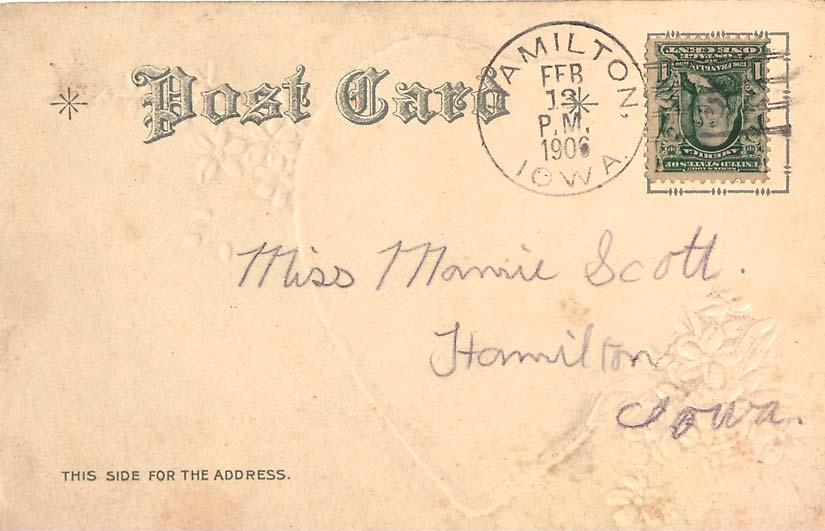 Post Card
HAMILTON,
FEB
13
P.M.
1906
IOWA.
Miss Mamie Scott.
Hamilton
Iowa.
THIS SIDE FOR THE ADDRESS.